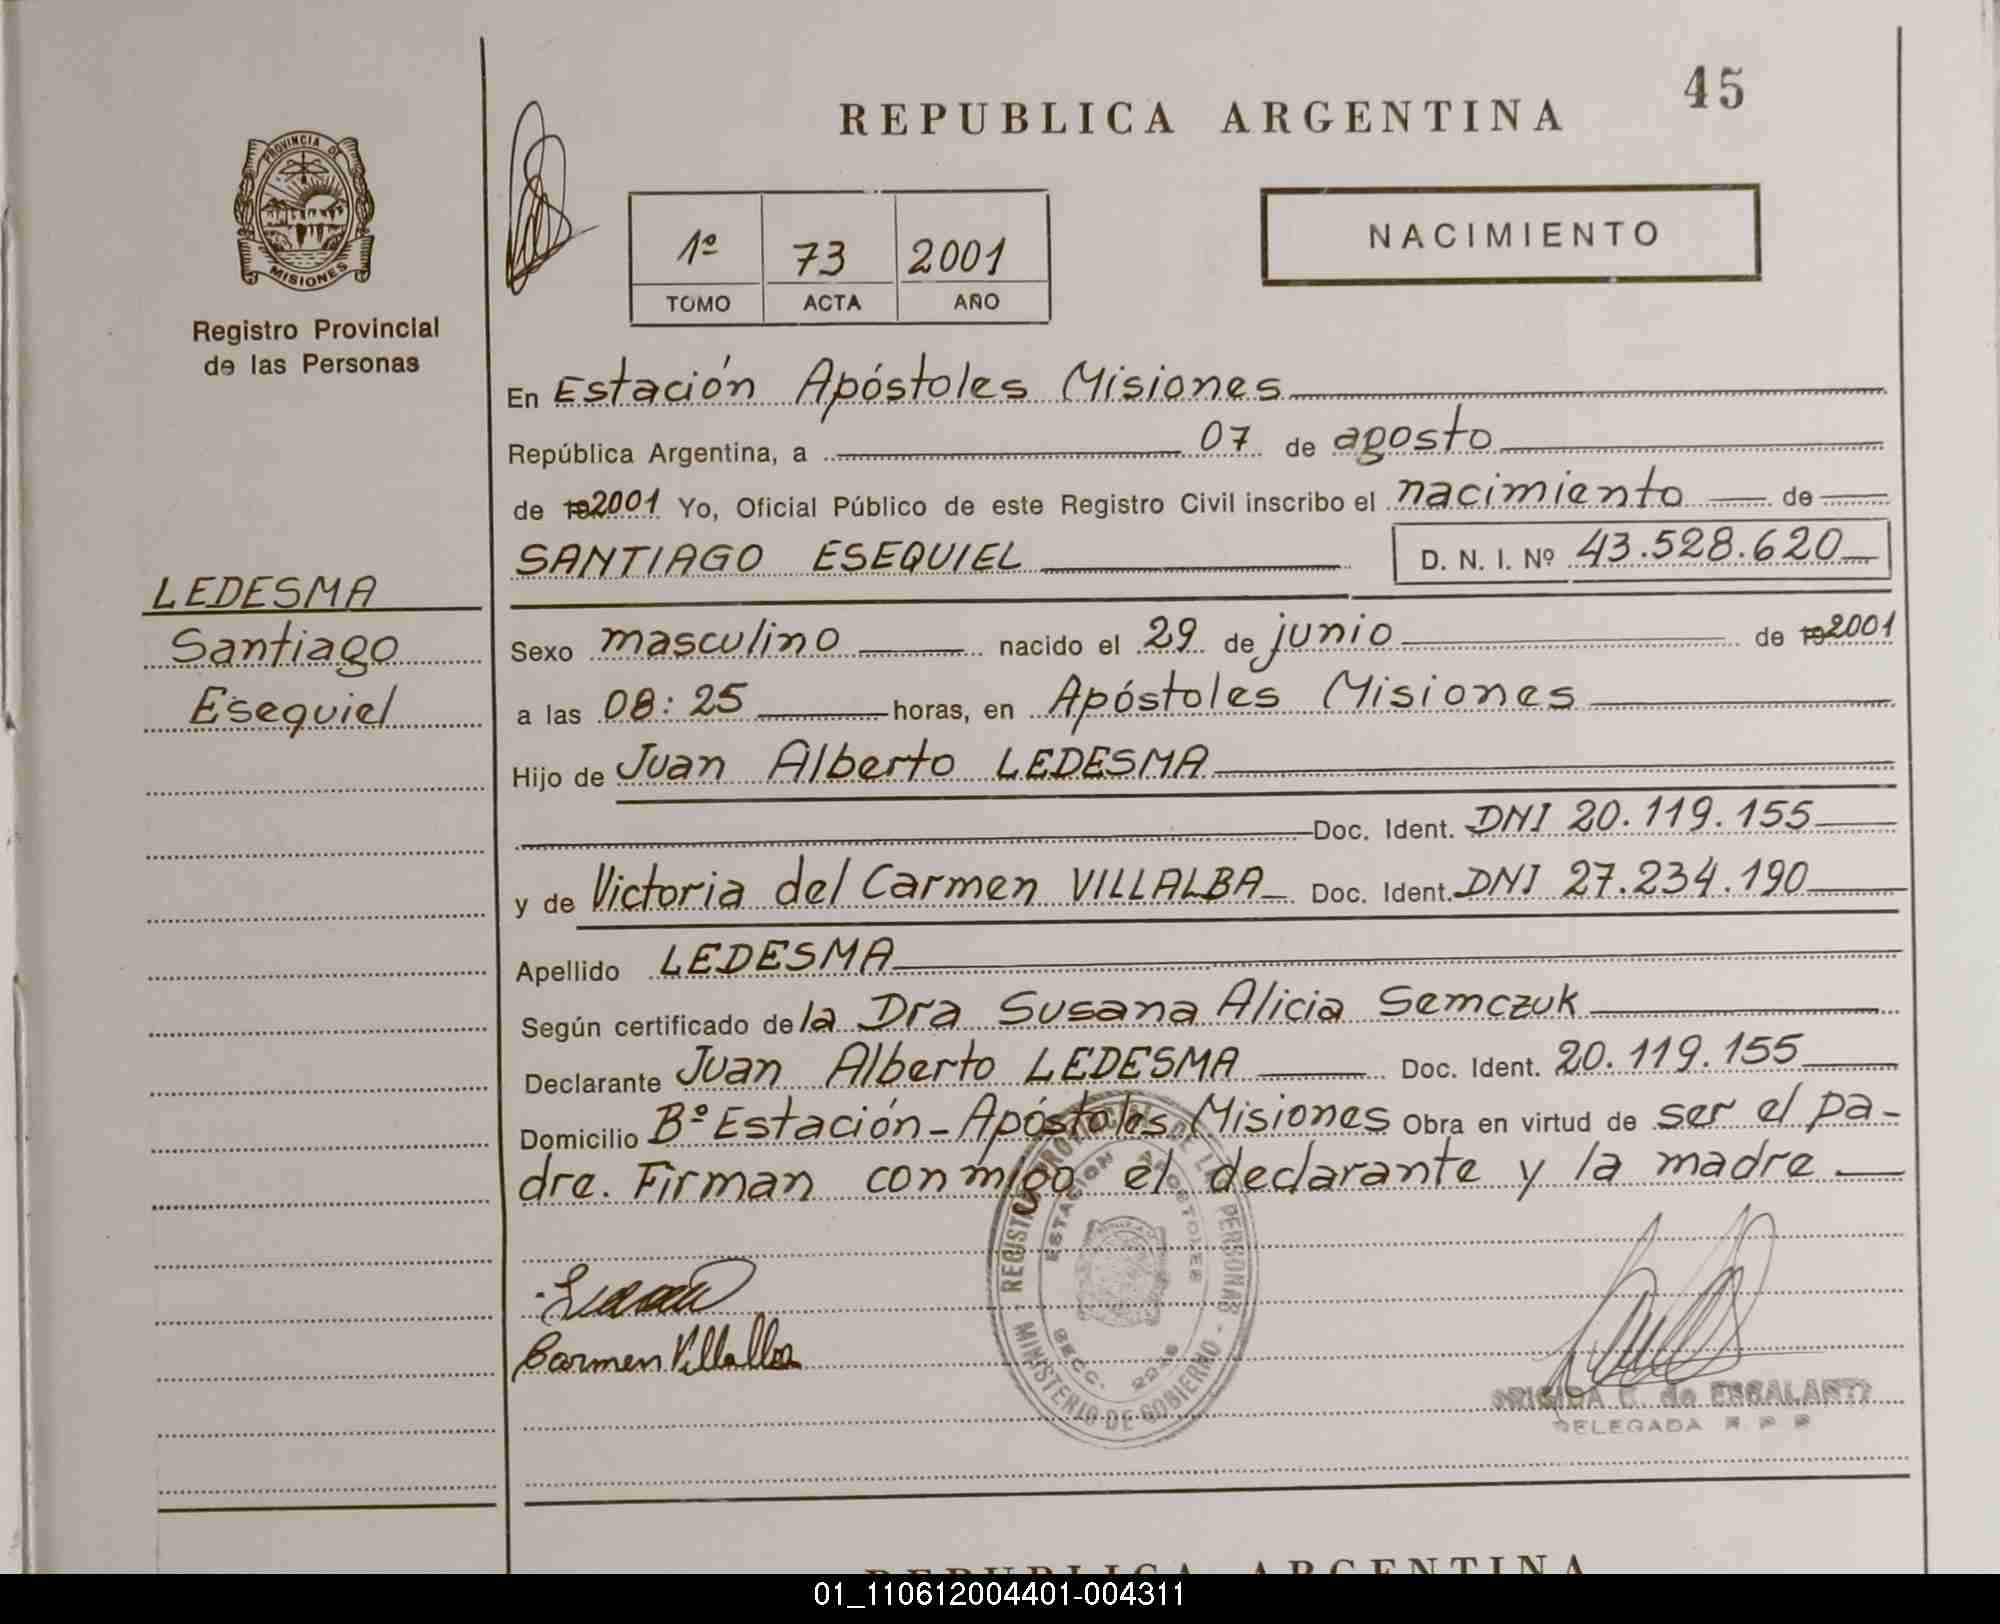 45
REPUBLICA ARGENTINA
PROVINCIA DE
MISIONES
Registro Provincial
de las Personas
1º 73 2001
TOMO ACTA AÑO
NACIMIENTO
En Estación Apóstoles Misiones
República Argentina, a 07 de agosto
de 192001 Yo, Oficial Público de este Registro Civil inscribo el nacimiento de
SANTIAGO ESEQUIEL D. N. I. Nº 43.528.620
LEDESMA
Santiago
Esequiel
Sexo masculino nacido el 29 de junio de 192001
a las 08:25 horas, en Apóstoles Misiones
Hijo de Juan Alberto LEDESMA
Doc. Ident. DNI 20.119.155
y de Victoria del Carmen VILLALBA Doc. Ident. DNI 27.234.190
Apellido LEDESMA
Según certificado de la Dra Susana Alicia Semczuk
Declarante Juan Alberto LEDESMA Doc. Ident. 20.119.155
Domicilio Bº Estación - Apóstoles Misiones Obra en virtud de ser el pa-
dre. Firman conmigo el declarante y la madre
Carmen Villalba
REGISTRO PROVINCIAL DE LAS PERSONAS
ESTACION APOSTOLES
SECC.
MINISTERIO DE GOBIERNO
BRIGIDA E. de ESCALANTE
DELEGADA R P P
REPUBLICA ARGENTINA
01_110612004401-004311